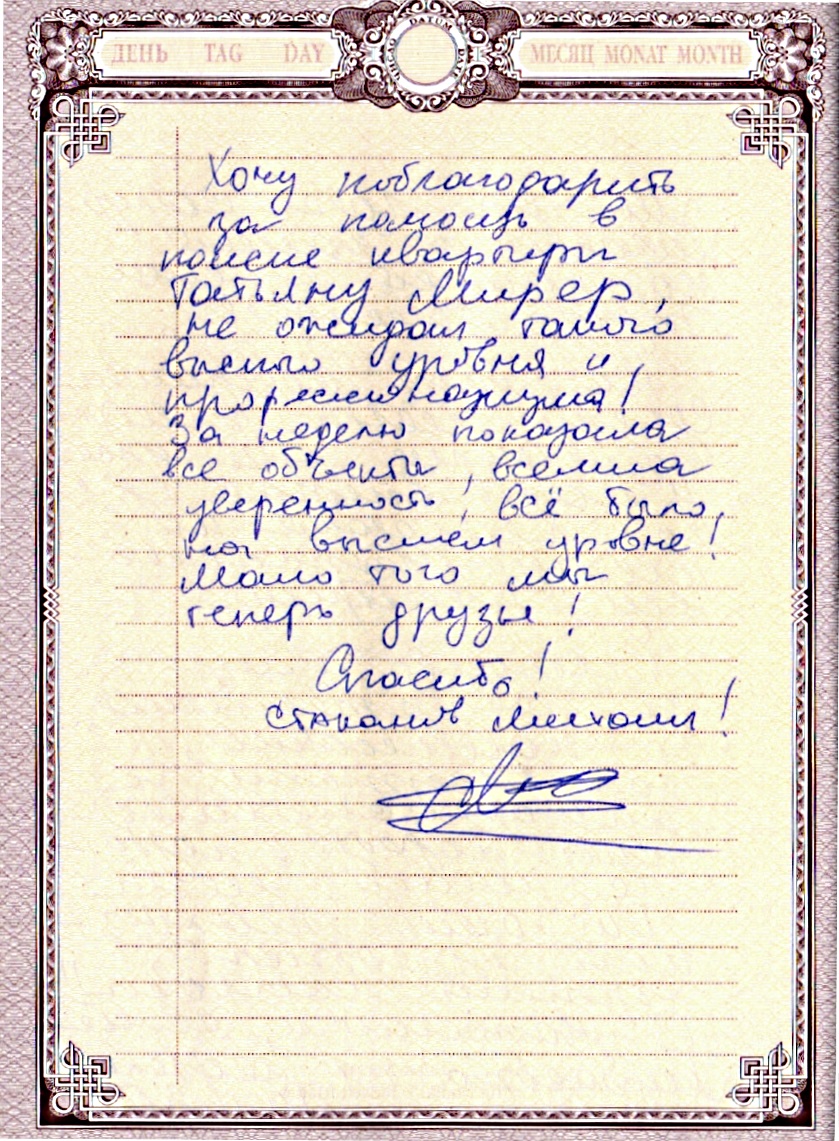 ДЕНЬ TAG DAY DATUM DATE МЕСЯЦ MONAT MONTH
Хочу поблагодарить
за помощь в
поиске квартиры
Татьяну Мирер,
не ожидал такого
высокого уровня и
профессионализма!
За неделю показала
все объекты, вселила
уверенность, всё было
на высшем уровне!
Мало того мы
теперь друзья!
Спасибо!
Стаканов Михаил!